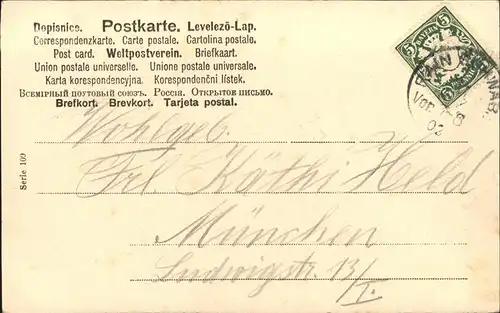 Dopisnice. Postkarte. Levelező-Lap.
Correspondenzkarte. Carte postale. Cartolina postale.
Post card. Weltpostverein. Briefkaart.
Union postale universelle. Unione postale universale.
Karta korespondencyjna. Korespondenční lístek.
Всемірный почтовый союзъ. Россія. Открытое письмо.
Brefkort. Brevkort. Tarjeta postal.
5 5
5 5
Vor
02
Serie 109
Wohlgeb.
Frl. Käthi Held
München
Ludwigstr. 13/I.